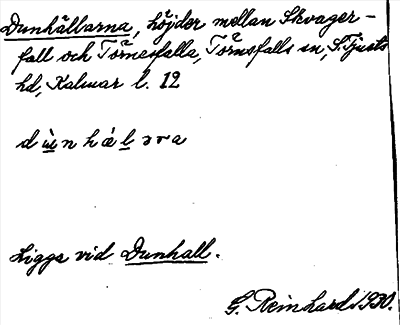 Dunhällarna, höjder mellan Skvager-
fall och Törnesfalla, Törnsfalls sn, S. Tjusts
hd, Kalmar l. 12
Liggs vid Dunhall.
G. Reinhard 1930.